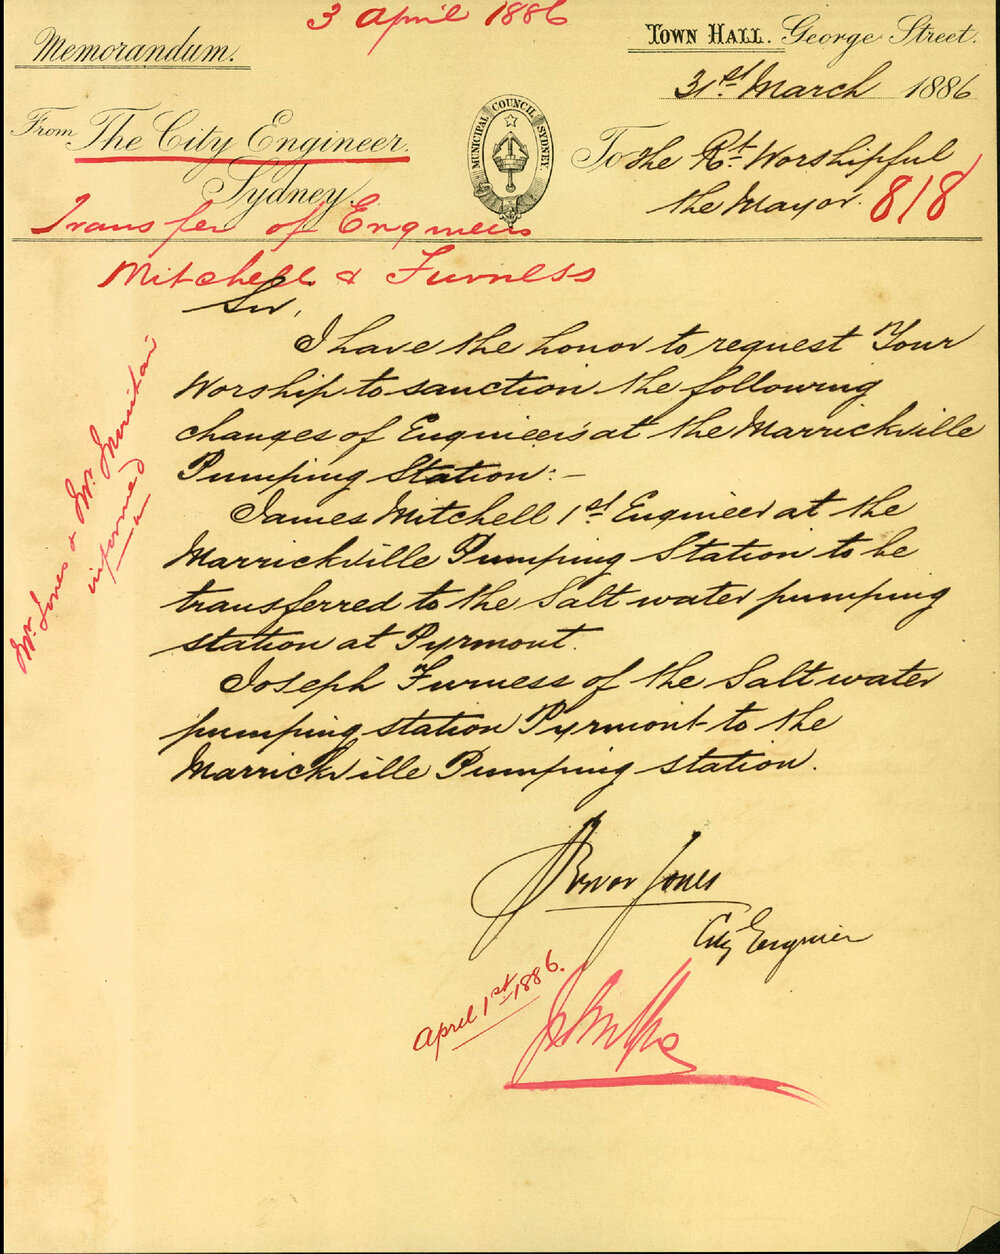 3 April 1886
Memorandum.
TOWN HALL. George Street.
31st March 1886
From The City Engineer.
Sydney.
MUNICIPAL COUNCIL SYDNEY.
To the Rt. Worshipful
the Mayor.
818
Transfer of Engineers
Mitchell & Furness
Sir,
I have the honor to request Your
Worship to sanction the following
changes of Engineers at the Marrickville
Pumping Station:-
James Mitchell 1st Engineer at the
Marrickville Pumping Station to be
transferred to the Salt water pumping
station at Pyrmont.
Joseph Furness of the Salt water
pumping station Pyrmont to the
Marrickville Pumping station.
Mr. Jones & Mr.
informed
Trevor Jones
City Engineer
April 1st 1886.